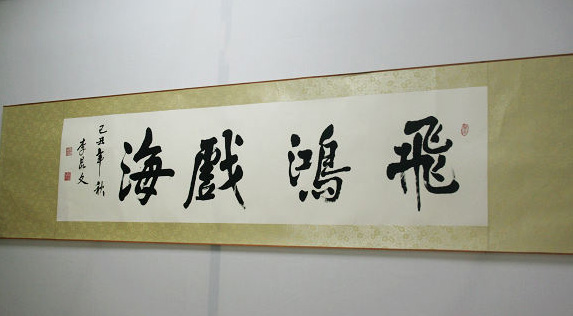 飛鴻戲海
己丑年秋
李昆文